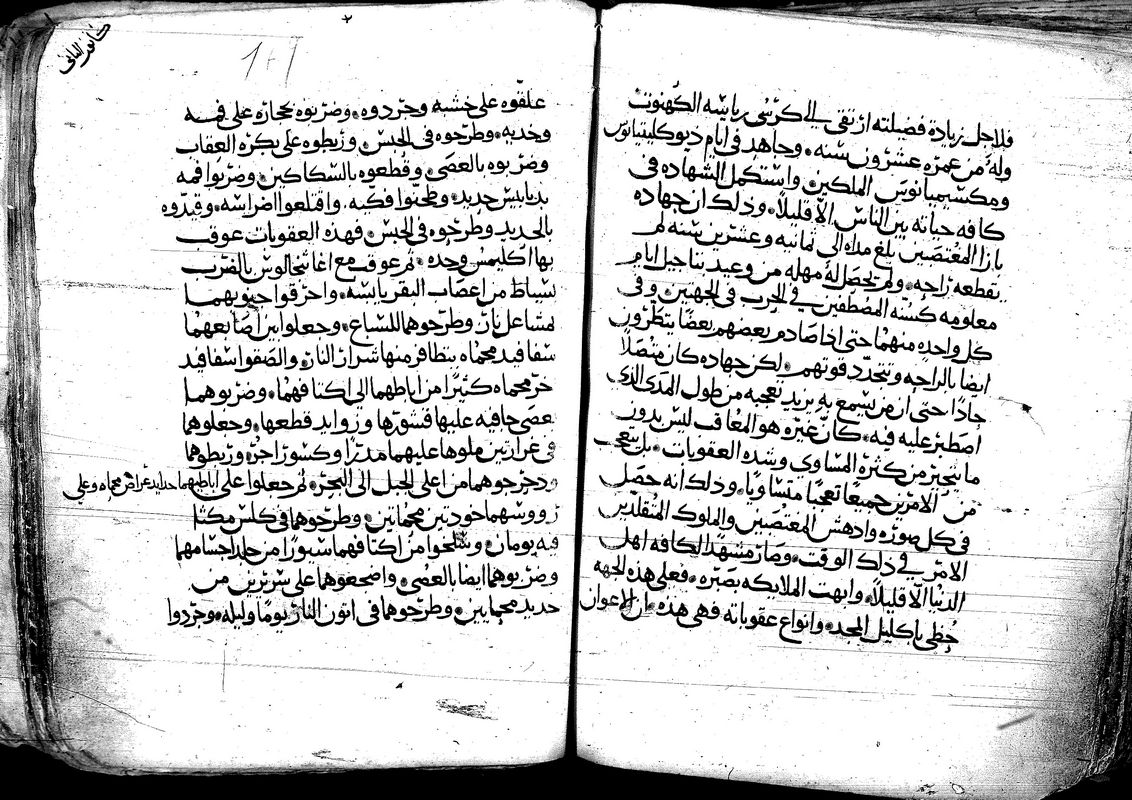 فلاجل زيادة فضيلته ارتقى الى كرسي رياسه الكهنوت
وله من عمره عشرون سنه، وجاهد فى ايام ديوكليتيانوس
ومكسيميانوس الملكين، واستكمل الشهاده فى
كافه حياته بين الناس الا قليلاً، وذلك ان جهاده
بازا المغتصبين بلغ مداه الى ثمانيه وعشرين سنه لم
تقطعه راحه، ولم تحصل له مهله من وعيد بتاجيل ايام
معلومه كسنه المصطفين فى الحرب فى الجهتين، وفى
كل واحده منهما حتى اذا صادم بعضهم بعضاً ينتظرون
ايضا بالراحه وتتجدد قوتهم، لكن جهاده كان متصلاً
جادًا حتى ان من يسمع به يزيد تعجبه من طول المدى الذى
اصطبر عليه فيه، كان غيره هو المعاف ليس بدون
ما يتحير من كثرة المساوي وشده العقوبات، بل يتعجب
من الامرين جميعا تعجبًا متساويا، وذلك انه حصل
فى كل صوره وادهش المغتصبين والملوك المتقلدين
الامر فى ذلك الوقت، وصار مشهدًا لكافه اهل
الدنيا الا قليلاً، وابهت الملايكه بصبره، فعلى هذه الجهه
حظى باكليل المجد، وانواع عقوباته فهى هذه، ان الاعوان
كانون الثانى
١٠٩
علقوه على خشبه وجردوه، وضربوه بحجاره على فمه
وخديه، وطرحوه فى الحبس، وربطوه على بكرة العقاب
وضربوه بالعصى، وقطعوه بالسكاكين، وضربوا فمه
بدبابيس حديد، وطحنوا فكيه، واقتلعوا اضراسه، وقيدوه
بالحديد وطرحوه فى الحبس، فهذه العقوبات عوقب
بها اكليمس وحده، ثم عوقب مع اغاثنجالوس بالضرب
بسياط من اعصاب البقر يابسه، واحرقوا جنوبهما
بمشاعل نار، وطرحوهما للسباع، وجعلوا بين اصابعهما
سفافيد محماه يتطافر منها شرار النار، والصقوا سفافيد
اخر محماه كثيرًا من اباطهما الى اكتافهما، وضربوهما
بعصى جافيه عليها قشورها وزوايد قطعها، وجعلوهما
فى غرارتين ملوها عليهما مدرًا وكسور اجر، وربطوهما
ودحرجوهما من اعلى الجبل الى البحر، ثم جعلوا على اباطيهما حدايد عراض محماه وعلى
رووسهما خودتين محماتين، وطرحوهما فى كلس مكثا
فيه يومان، وسلخوا من اكتافهما سيورًا من جلد اجسامهما
وضربوهما ايضا بالعصى، واضجعوهما على سريرين من
حديد محمايين، وطرحوهما فى اتون النار يومًا وليله، وجردوا